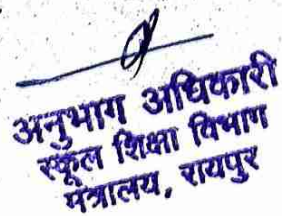 अनुभाग अधिकारी
स्कूल शिक्षा विभाग
मंत्रालय, रायपुर